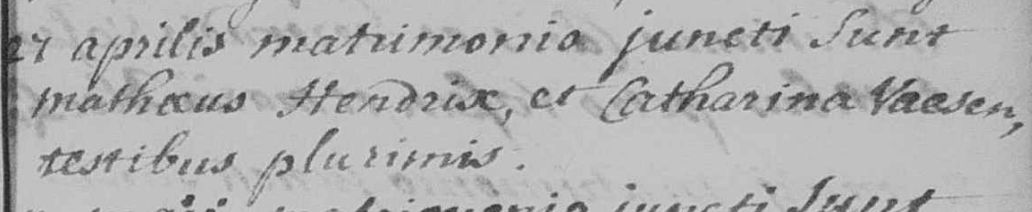 27 aprilis matrimonio juncti Sunt
mathæus Hendrix, et Catharina Vaesen,
testibus plurimis.
matrimonio juncti Sunt